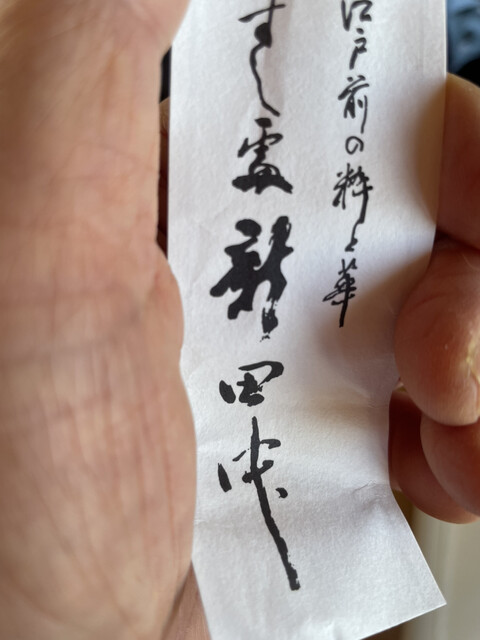 江戸前の粋と華
すし處新田中